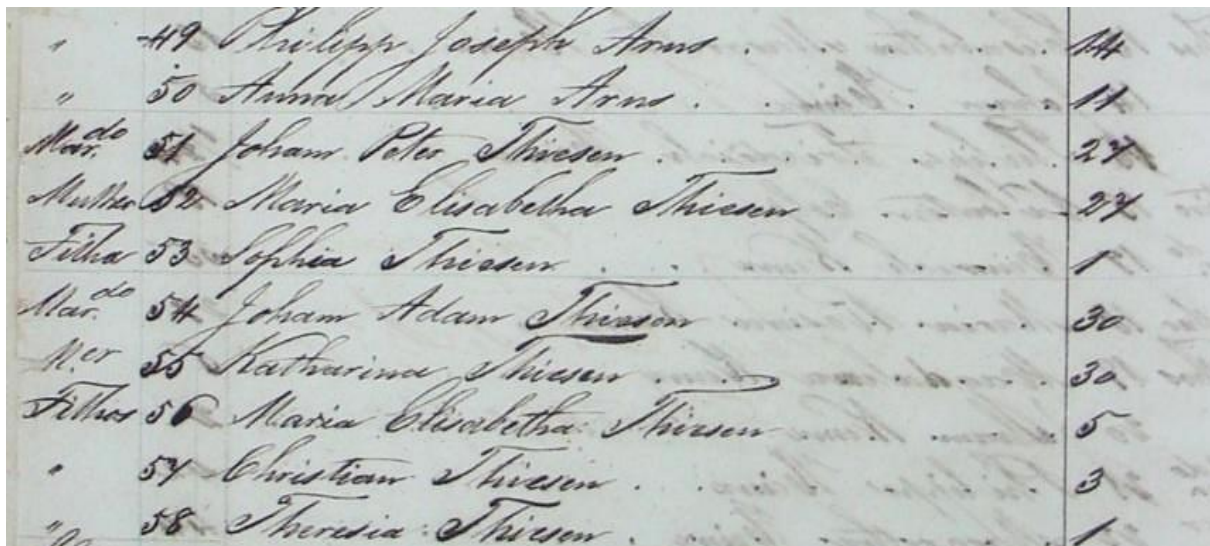 " 49 Philipp Joseph Arns . 14
" 50 Anna Maria Arns . . . . 11
Mar.do 51 Joham Peter Thiesen . . . . 27
Mulher 52 Maria Elisabetha Thiesen . . . 27
Filha 53 Sophia Thiesen . . . . 1
Mar.do 54 Joham Adam Thiesen . . . 30
M.er 55 Katharina Thiesen . . . . 30
Filhos 56 Maria Elisabetha Thiesen 5
" 57 Christian Thiesen . . . 3
" 58 Theresia Thiesen . . . 1